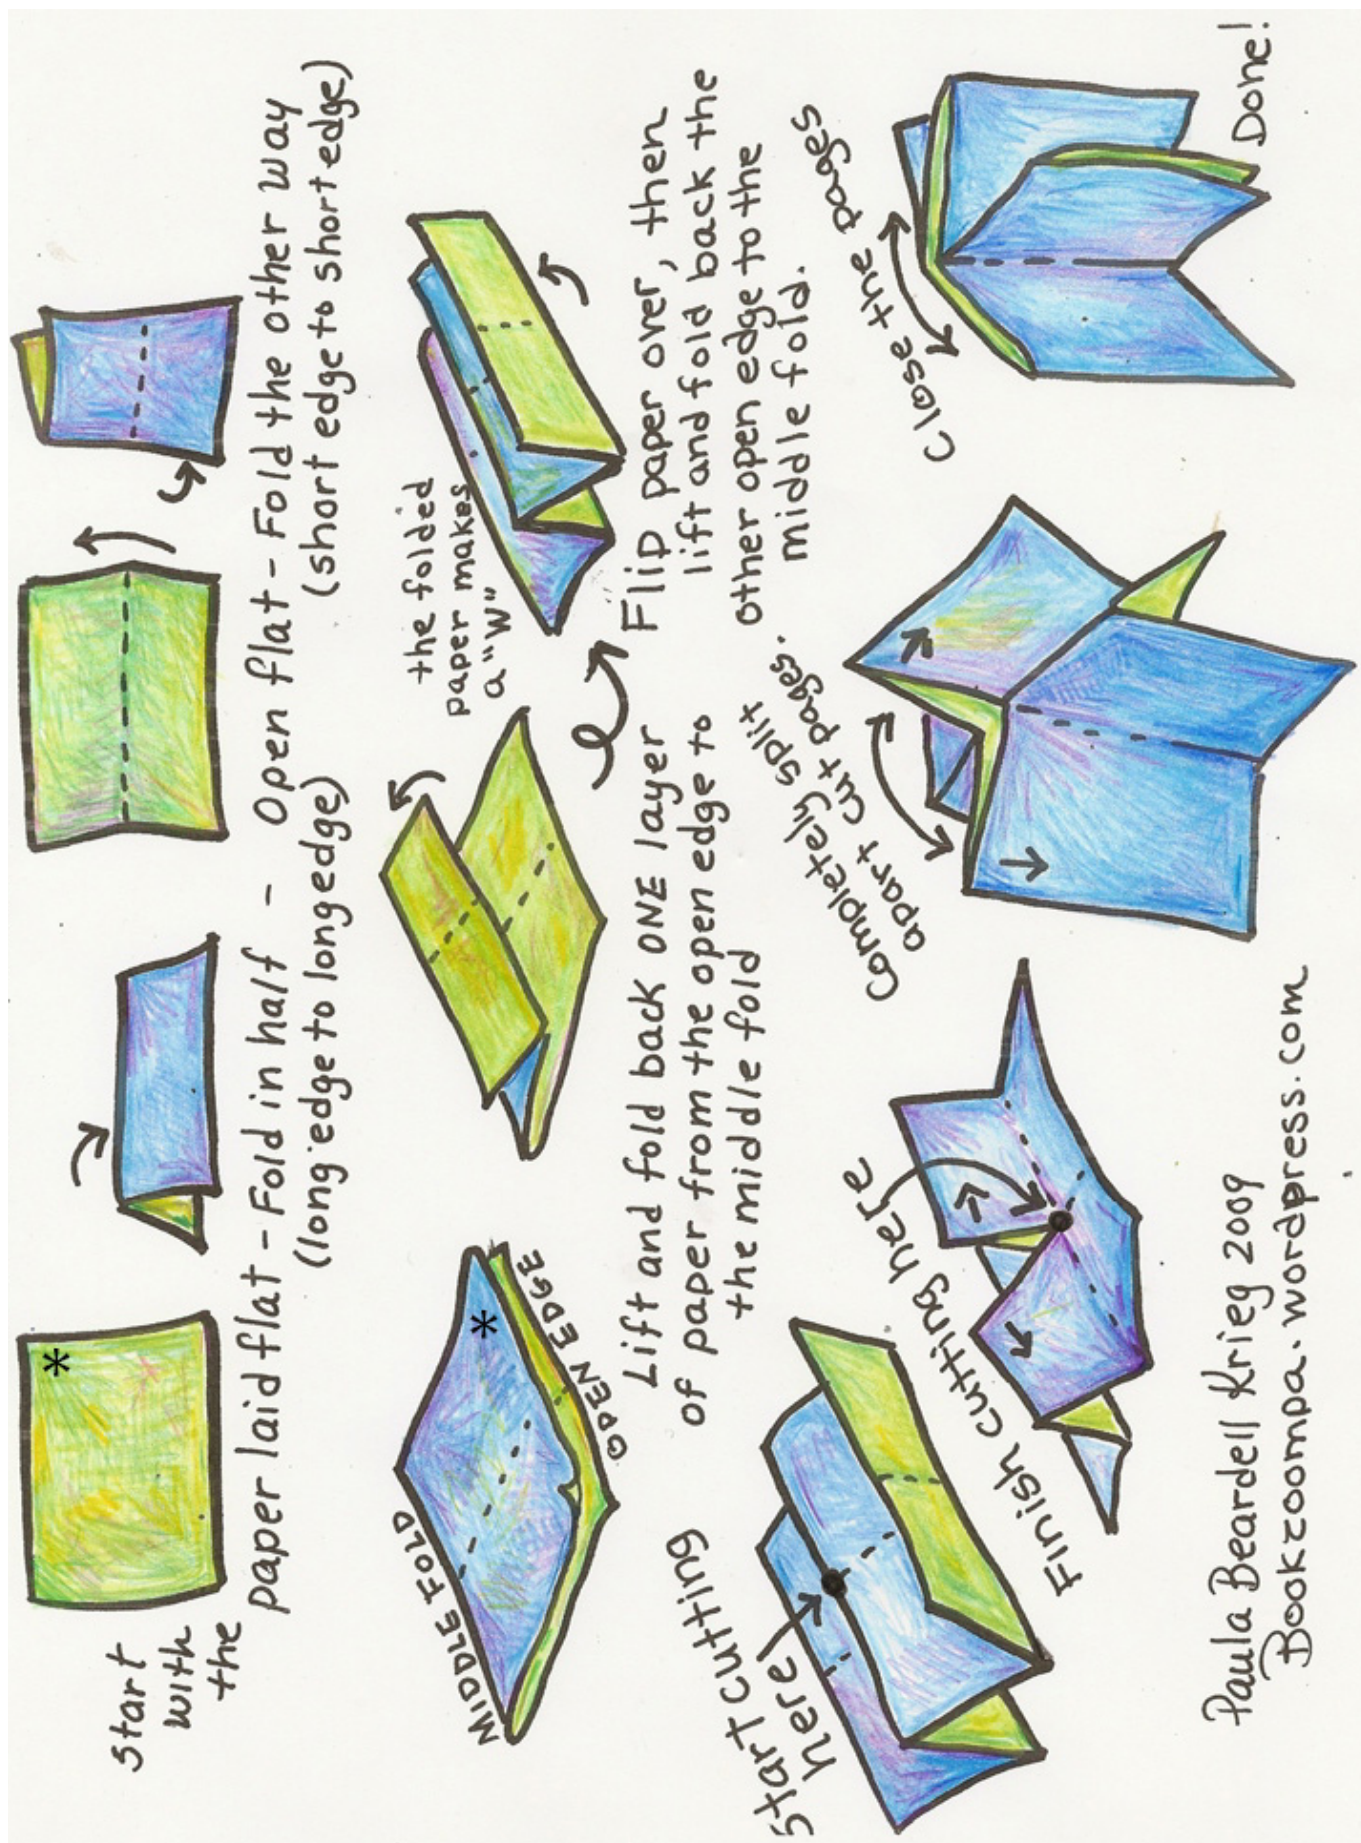 Start
with
the
paper laid flat - Fold in half - Open flat - Fold the other way
(long edge to long edge)
(short edge to short edge)
*
MIDDLE FOLD
*
OPEN EDGE
Lift and fold back ONE layer
of paper from the open edge to
the middle fold
the folded
paper makes
a "W"
Flip paper over, then
lift and fold back the
other open edge to the
middle fold.
Start cutting
here
Finish cutting here
Completely split
apart cut pages.
Close the pages
Done!
Paula Beardell Krieg 2009
Bookzoompa.wordpress.com